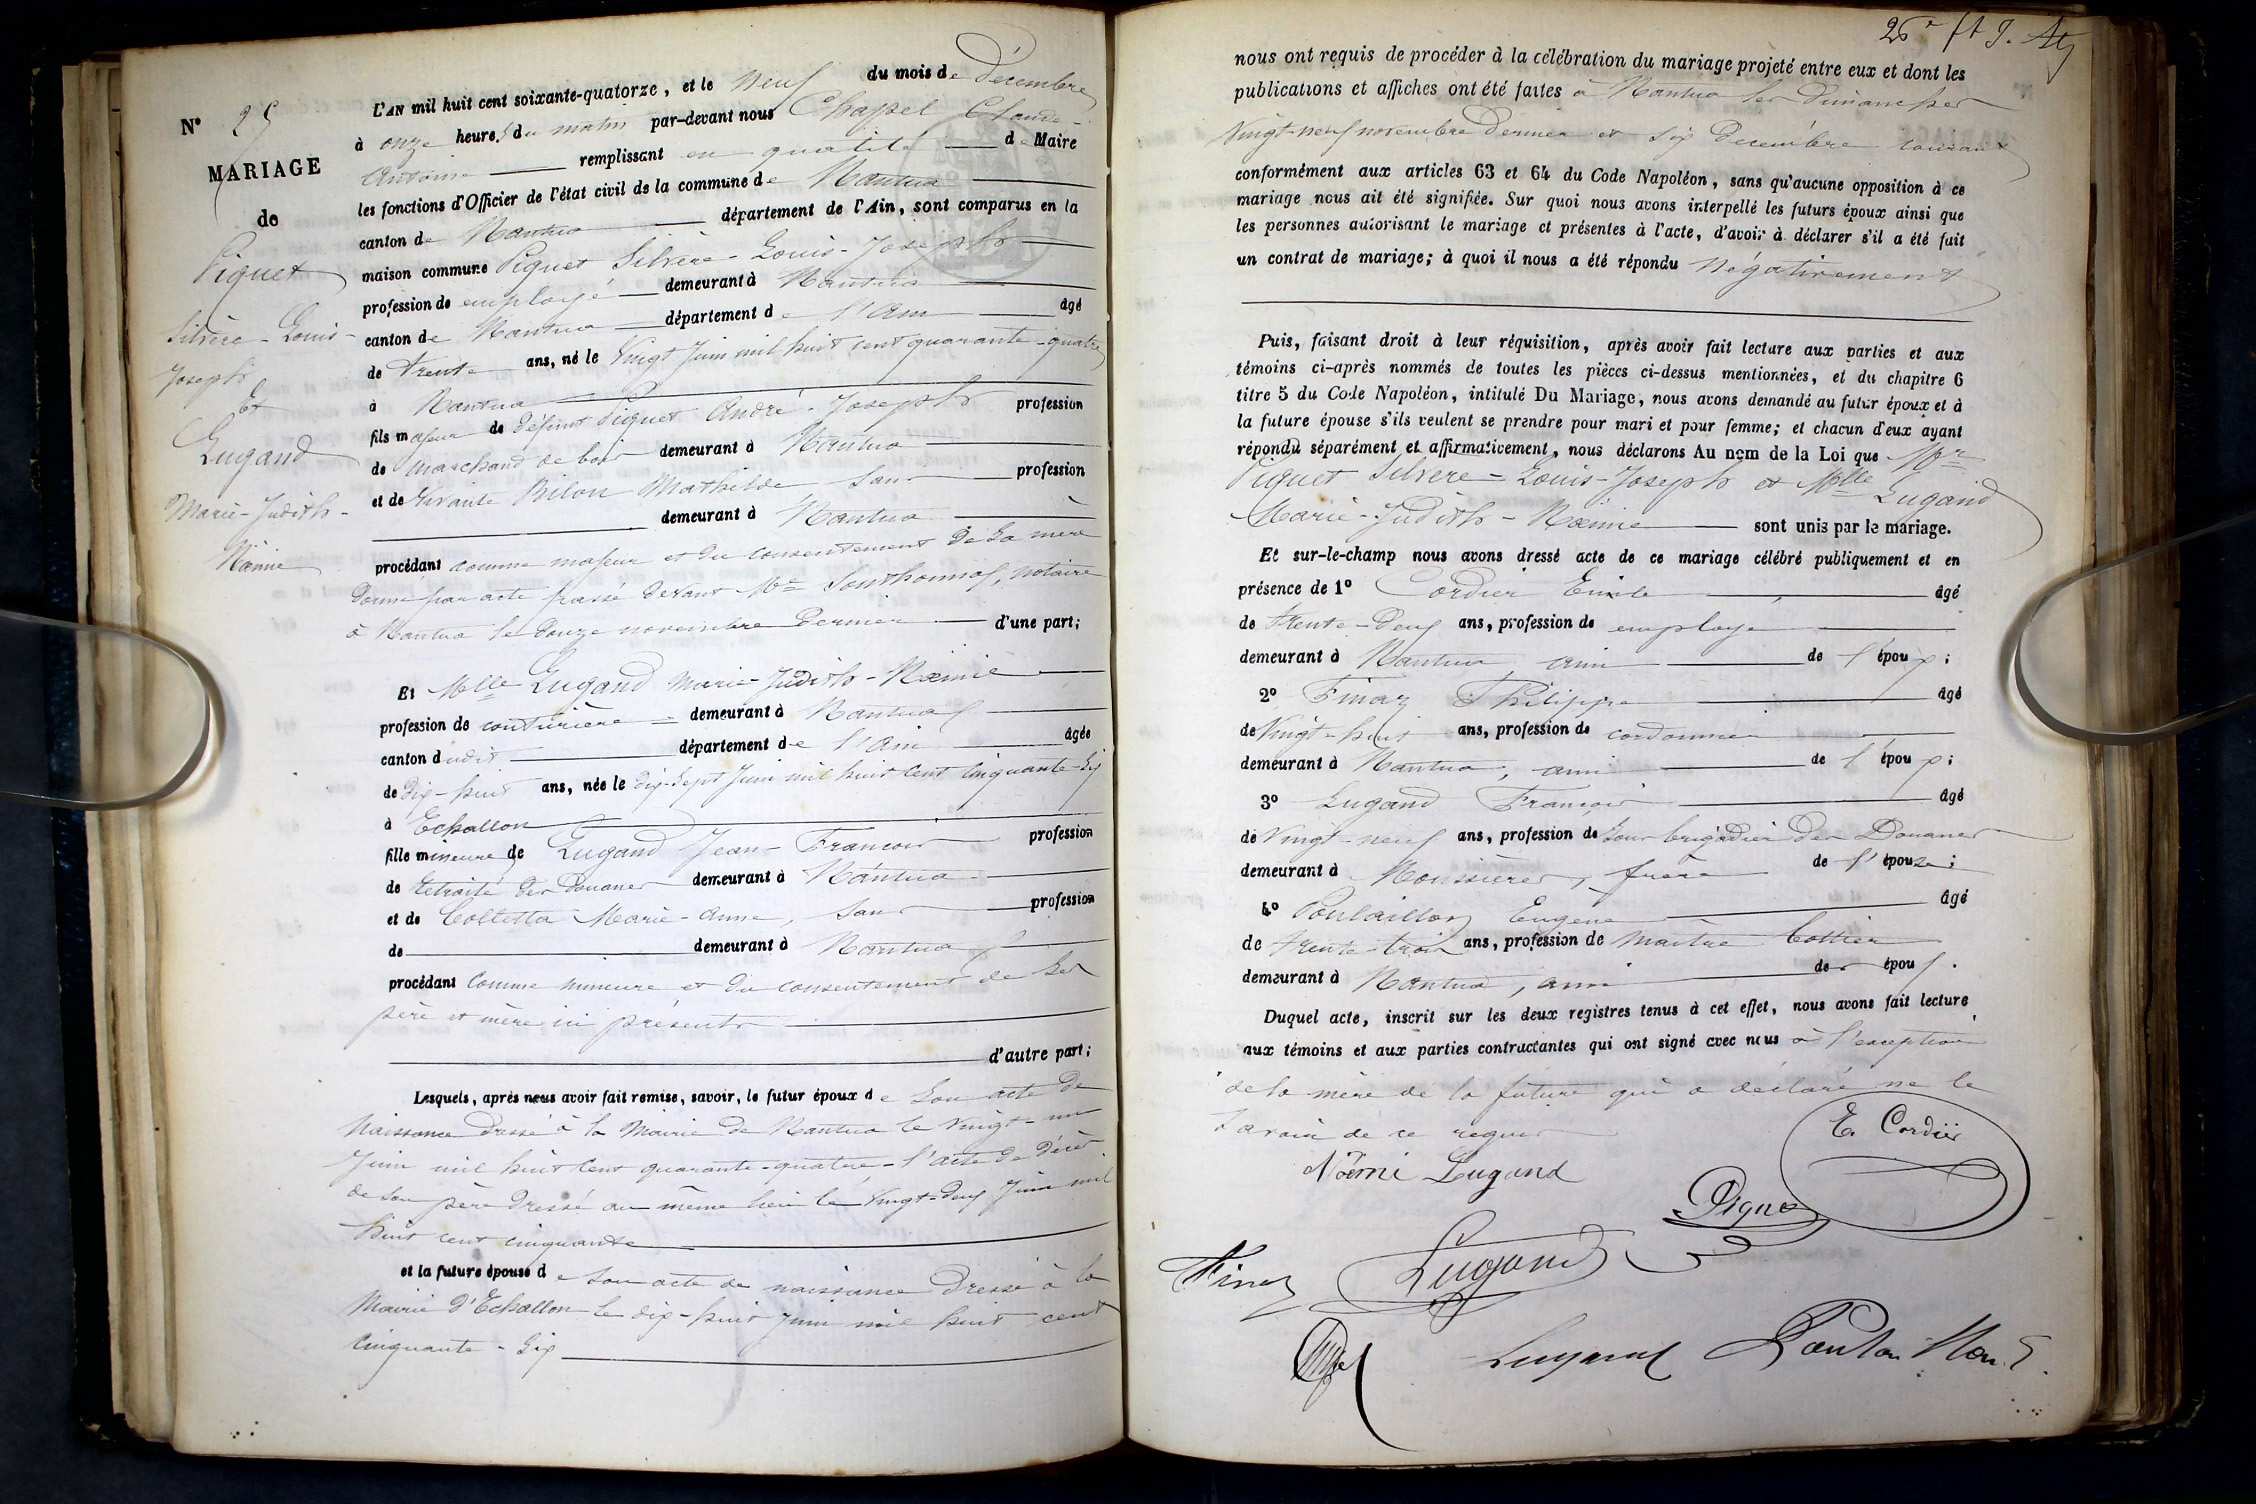 N° 25
MARIAGE
de
Piquet
Silvère-Louis-
Joseph
Et
Lugand
Marie-Judith-
Näémie
L'AN mil huit cent soixante-quatorze, et le neuf du mois de Décembre
à onze heures du matin par-devant nous Chapel Claude-
Antoine remplissant en qualité de Maire
les fonctions d'Officier de l'état civil de la commune de Nantua
canton de Nantua département de l'Ain, sont comparus en la
maison commune Piquet Silvère-Louis-Joseph
profession de employé demeurant à Nantua
canton de Nantua département de l'Ain âgé
de trente ans, né le Vingt Juin mil huit cent quarante-quatre
à Nantua
fils majeur de défunt Piquet André-Joseph profession
de marchand de bois demeurant à Nantua
et de vivante Bilon Mathilde sans profession
demeurant à Nantua
procédant comme majeur et du consentement de sa mère
donné par acte passé devant Me Sonthonnas, notaire
à Nantua le douze novembre dernier d'une part;
Et Melle Lugand Marie-Judith-Näémie
profession de couturière demeurant à Nantua
canton dudit département de l'Ain âgée
de dix-huit ans, née le dix-sept Juin mil huit cent cinquante-six
à Echallon
fille mineure de Lugand Jean-François profession
de retraité des Douanes demeurant à Nantua
et de Colletta Marie-Anne, sans profession
de demeurant à Nantua
procédant comme mineure et du consentement de ses
père et mère ici présents
d'autre part;
Lesquels, après nous avoir fait remise, savoir, le futur époux de son acte de
naissance dressé à la Mairie de Nantua le Vingt-un
Juin mil huit cent quarante-quatre - l'acte de décès
de son père dressé au même lieu le Vingt-deux Juin mil
huit cent cinquante
et la future épouse de son acte de naissance dressé à la
Mairie d'Echallon le dix-huit Juin mil huit cent
cinquante-six
26e ft
nous ont requis de procéder à la célébration du mariage projeté entre eux et dont les
publications et affiches ont été faites à Nantua les Dimanches
Vingt-neuf novembre dernier et six Décembre courant
conformément aux articles 63 et 64 du Code Napoléon, sans qu'aucune opposition à ce
mariage nous ait été signifiée. Sur quoi nous avons interpellé les futurs époux ainsi que
les personnes autorisant le mariage et présentes à l'acte, d'avoir à déclarer s'il a été fait
un contrat de mariage; à quoi il nous a été répondu Négativement
Puis, faisant droit à leur réquisition, après avoir fait lecture aux parties et aux
témoins ci-après nommés de toutes les pièces ci-dessus mentionnées, et du chapitre 6
titre 5 du Code Napoléon, intitulé Du Mariage, nous avons demandé au futur époux et à
la future épouse s'ils veulent se prendre pour mari et pour femme; et chacun d'eux ayant
répondu séparément et affirmativement, nous déclarons Au nom de la Loi que Mr
Piquet Silvère-Louis-Joseph et Melle Lugand
Marie-Judith-Näémie sont unis par le mariage.
Et sur-le-champ nous avons dressé acte de ce mariage célébré publiquement et en
présence de 1° Cordier Emile âgé
de trente-deux ans, profession de employé
demeurant à Nantua, ami de l'époux;
2° Finaz Philippe âgé
de Vingt-huit ans, profession de cordonnier
demeurant à Nantua, ami de l'époux;
3° Lugand François âgé
de Vingt-neuf ans, profession de sous brigadier des Douanes
demeurant à Moussières, frère de l'épouse;
4° Poulaillon Eugène âgé
de trente-trois ans, profession de Maître
demeurant à Nantua, ami des époux.
Duquel acte, inscrit sur les deux registres tenus à cet effet, nous avons fait lecture
aux témoins et aux parties contractantes qui ont signé avec nous à l'exception
de la mère de la future qui a déclaré ne le
savoir de ce requis
E. Cordier
Noémi Lugand
Piquet
Finaz
Lugand
Chapel
Lugand